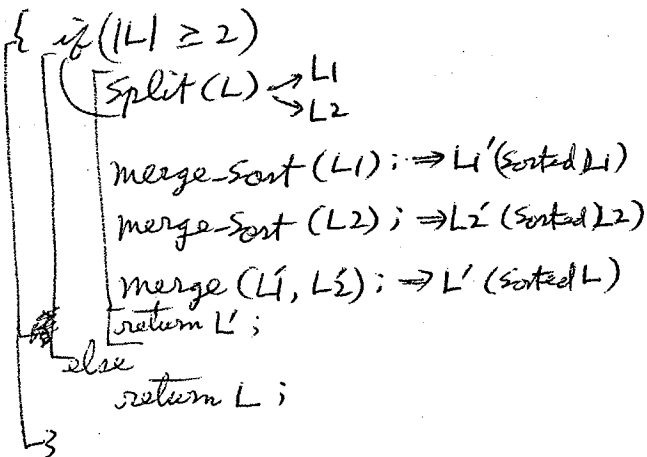 { if (|L| ≥ 2)
Split (L) → L1
→ L2
merge-Sort (L1) ; ⇒ L1' (Sorted L1)
merge-Sort (L2) ; ⇒ L2' (Sorted L2)
merge (L1', L2') ; ⇒ L' (Sorted L)
return L' ;
else
return L ;
}